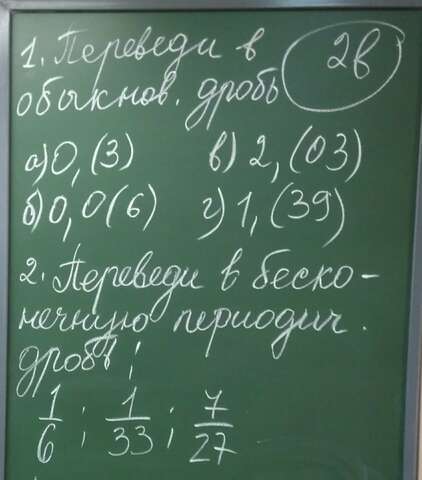 1. Переведи в
обыкнов. дробь
2в
а) 0,(3) в) 2,(03)
б) 0,0(6) г) 1,(39)
2. Переведи в беско-
нечную периодич.
дробь:
1/6 ; 1/33 ; 7/27